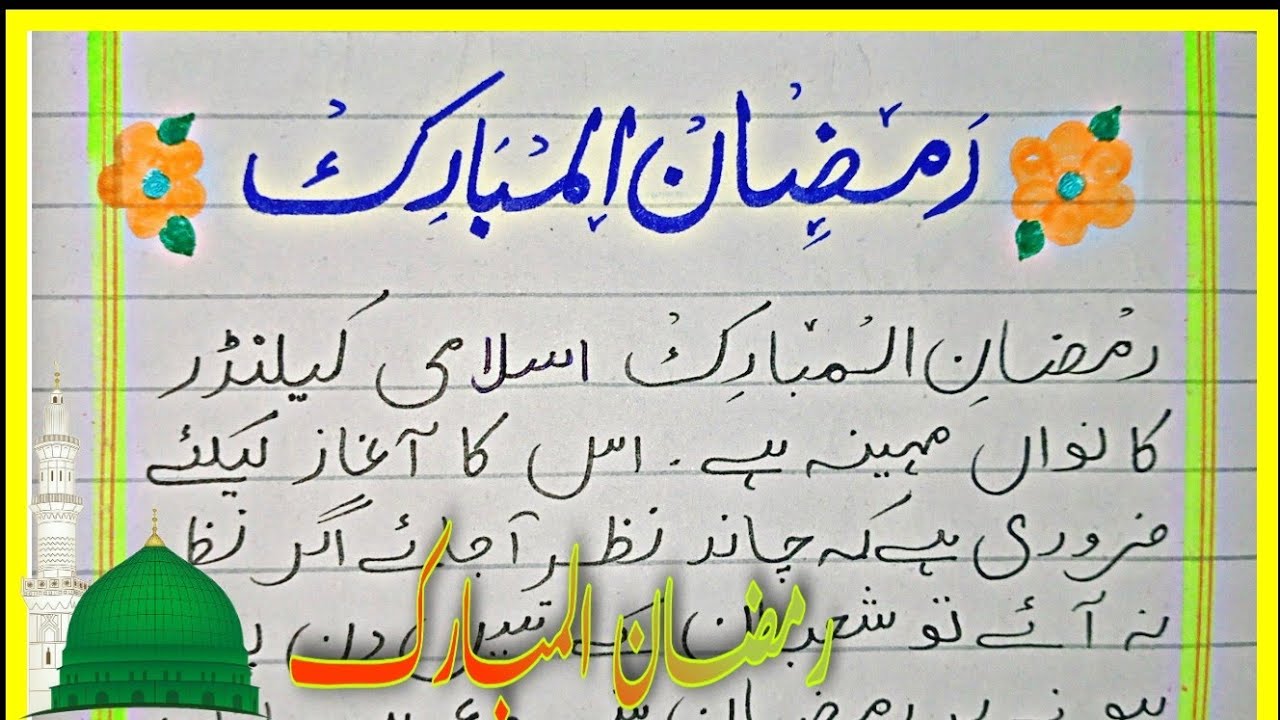 رَمضِان المبَارِک
رمضانِ المبَارِک اسلامی کیلنڈر
کا نواں مہینہ ہے۔ اس کا آغاز کیلئے
ضروری ہے کہ چاند نظر آ جائے اگر نظر
نہ آئے تو شعبان کے تیس دن
رمضان المبارک
رمضان